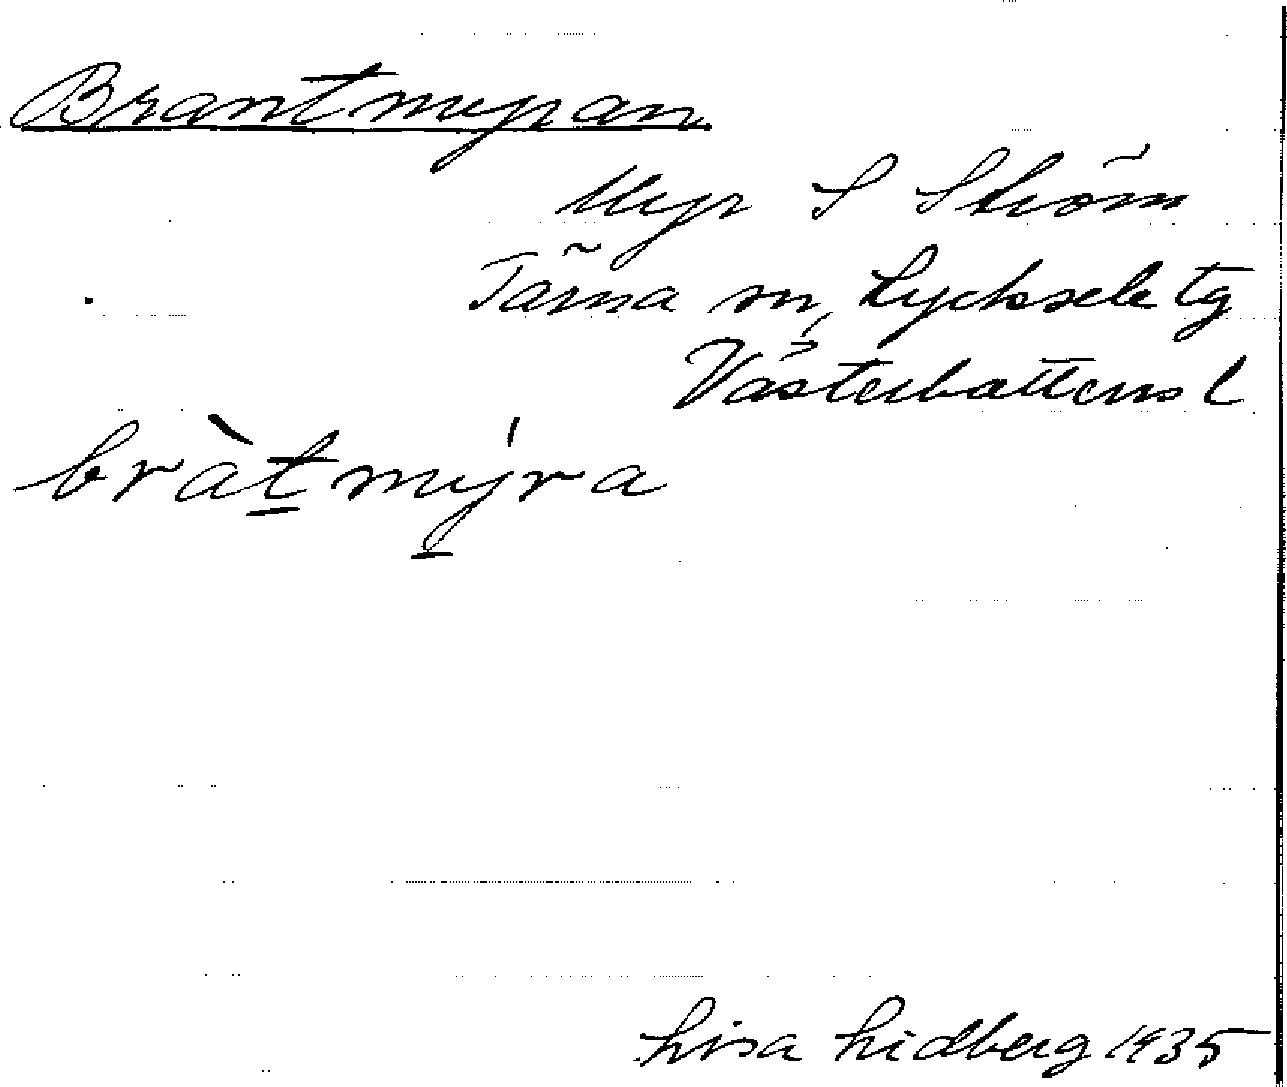 Brantmyran
Myr S Ström
Tärna sn, Lycksele tg
Västerbottens l
bràt̲mýra
Lisa Lidberg 1935